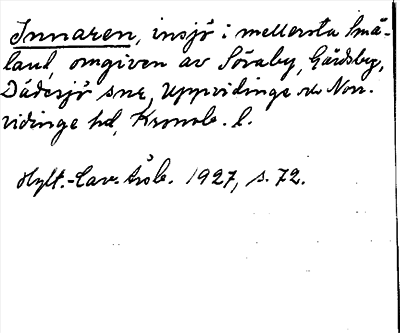 Innaren, insjö i mellersta Små-
land, omgiven av Söraby, Gårdsby,
Dädesjö snr, Uppvidinge och Norr-
vidinge hd, Kronob. l.
Hylt.-Cav. Årsb. 1927, s. 72.